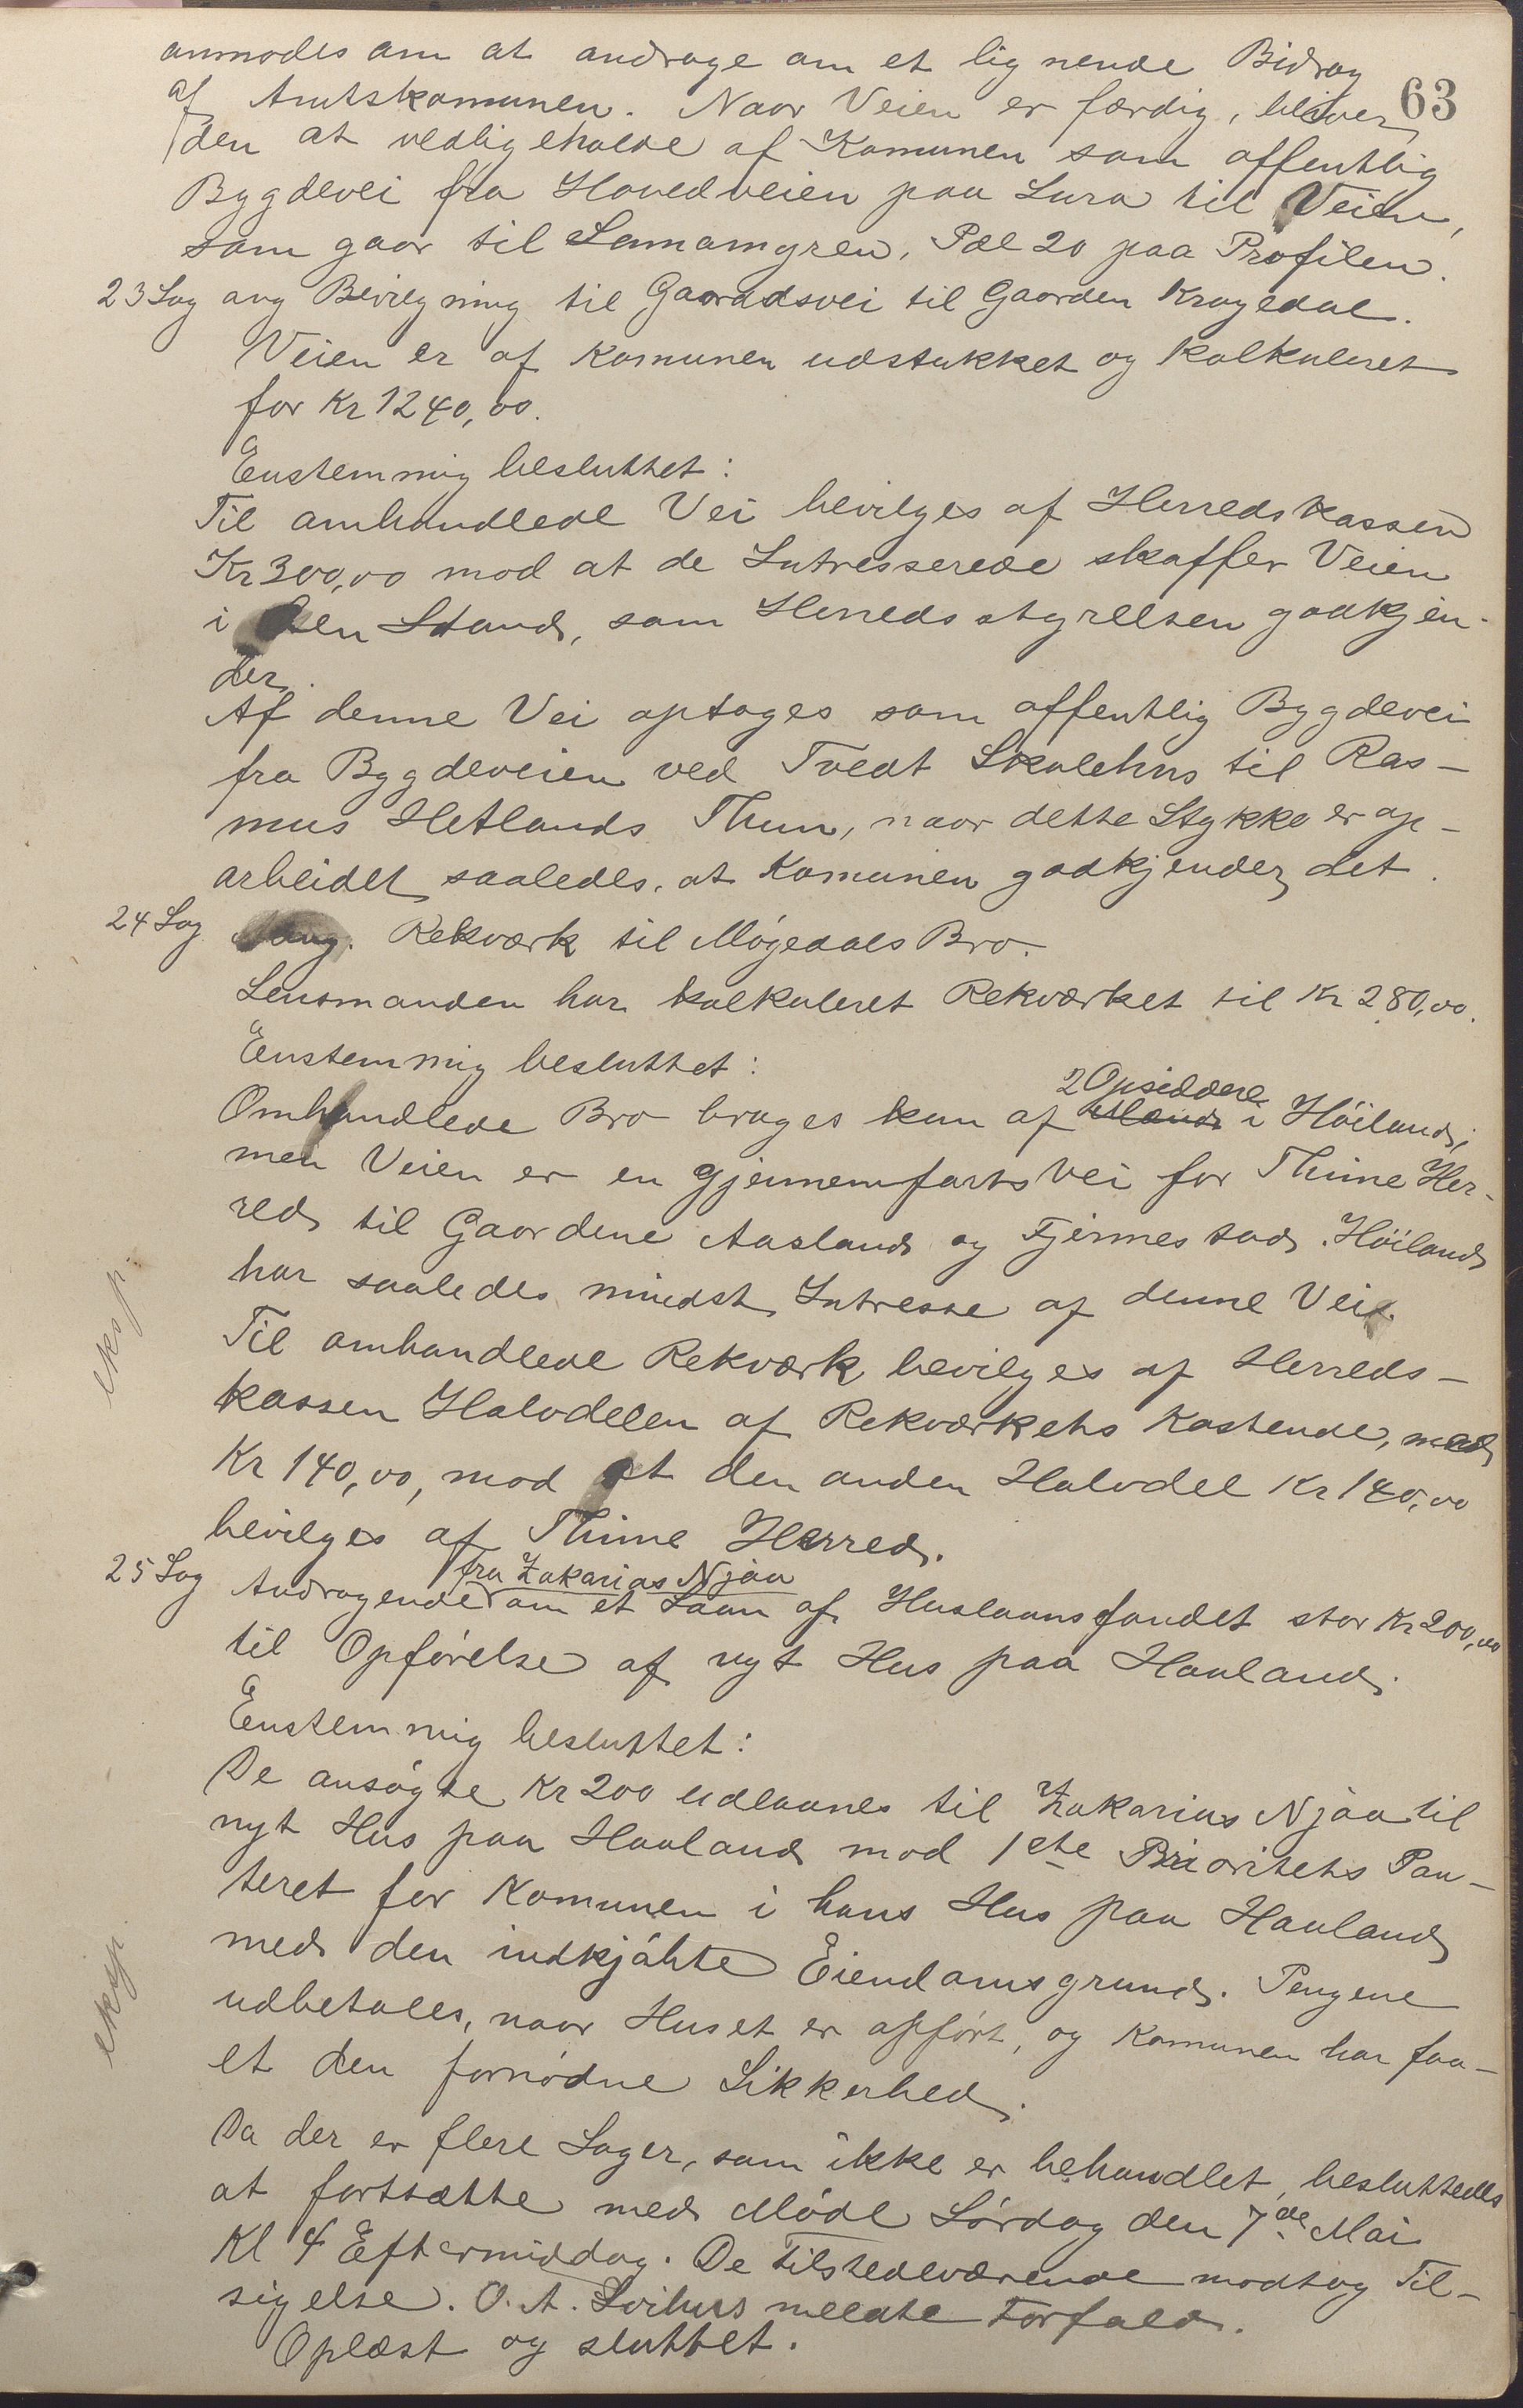 63
anmodes om at andrage om et lignende Bidrag
af Amtskomunen. Naar Veien er færdig, bliver
den at vedligeholde af Komunen som offentlig
Bygdevei fra Hovedveien paa Lura til Veien,
som gaar til Lamamyren, Pæl 20 paa Profilen.
23 Sag ang Bevilgning til Gaardsvei til Gaarden Kragedal.
Veien er af Komunen udstukket og kalkuleret
for Kr 1240,00.
Enstemmig besluttet:
Til omhandlede Vei bevilges af Herredskassen
Kr 300,00 mod at de Intresserede skaffer Veien
i den Stand, som Herredsstyrelsen godkjen-
der.
Af denne Vei optages som offentlig Bygdevei
fra Bygdeveien ved Tvedt Skolehus til Ras-
mus Hetlands Thun, naar dette Stykke er op-
arbeidet saaledes, at Komunen godkjender det.
24 Sag Ang. Rekværk til Møgedals Bro.
Lensmanden har kalkuleret Rekværket til Kr 280,00.
Enstemmig besluttet:
2 Opsiddere
Omhandlede Bro bruges kun af i Høiland,
men Veien er en gjennemfarts Vei for Thime Her-
red til Gaardene Aasland og Fjermestad. Høiland
har saaledes mindst Intresse af denne Vei.
eksp.
Til omhandlede Rekværk bevilges af Herreds-
kassen Halvdelen af Rekværkets Kostende, med
Kr 140,00, mod at den anden Halvdel Kr 140,00
bevilges af Thime Herred.
fra Zakarias Njaa
25 Sag Andragende om et Laan af Huslaansfondet stor Kr 200,00
til Opførelse af nyt Hus paa Haaland.
Enstemmig besluttet:
De ansøgte Kr 200 udlaanes til Zakarias Njaa til
nyt Hus paa Haaland mod 1ste Prioritets Pan-
teret for Komunen i hans Hus paa Haaland
med den indkjøbte Eiendomsgrund. Pengene
eksp.
udbetales, naar Huset er opført, og Komunen har faa-
et den fornødne Sikkerhed.
Da der er flere Sager, som ikke er behandlet, besluttedes
at fortsætte med Møde Lørdag den 7de Mai
Kl 4 Eftermiddag. De Tilstedeværende modtog Til-
sigelse. O. A. Svihus meldte Forfald.
Oplæst og sluttet.